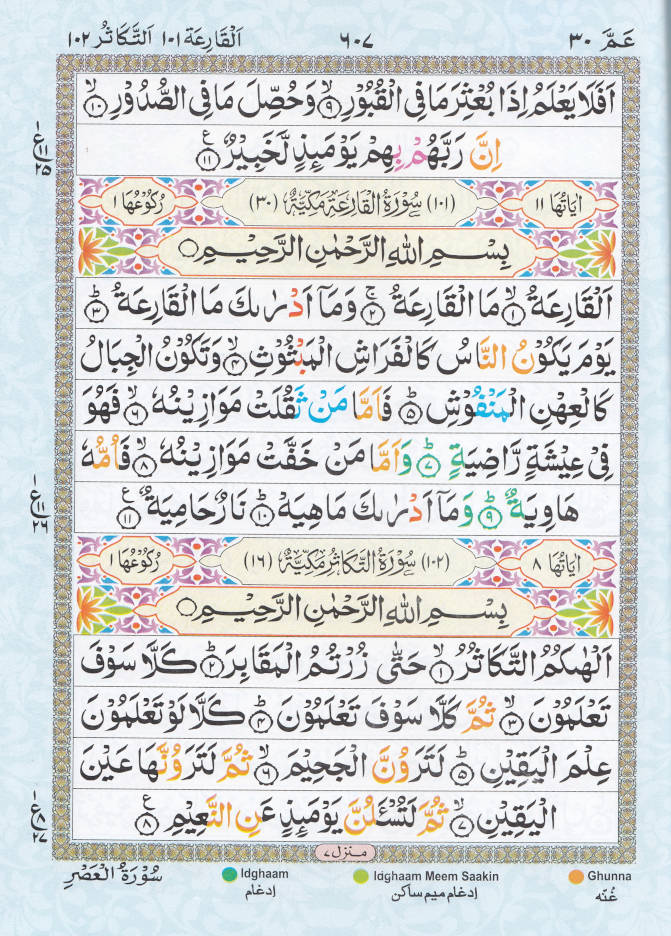 عَمَّ ٣٠
٦٠٧
اَلْقَارِعَة ١٠١ اَلتَّكَاثُر ١٠٢
اَفَلَا يَعْلَمُ اِذَا بُعْثِرَ مَا فِی الْقُبُوْرِ ۙ﴿۹﴾ وَحُصِّلَ مَا فِی الصُّدُوْرِ ۙ﴿۱۰﴾
اِنَّ رَبَّهُمْ بِهِمْ يَوْمَئِذٍ لَّخَبِيْرٌ ﴿۱۱﴾ ع
ع ١١ ٢٥
اٰيَاتُهَا ١١ (١٠١) سُوْرَةُ الْقَارِعَةِ مَكِّيَّةٌ (٣٠) رُكُوْعُهَا ١
بِسْمِ اللهِ الرَّحْمٰنِ الرَّحِيْمِ
اَلْقَارِعَةُ ۙ﴿۱﴾ مَا الْقَارِعَةُ ۚ﴿۲﴾ وَمَاۤ اَدْرٰىكَ مَا الْقَارِعَةُ ؕ﴿۳﴾
يَوْمَ يَكُوْنُ النَّاسُ كَالْفَرَاشِ الْمَبْثُوْثِ ۙ﴿۴﴾ وَتَكُوْنُ الْجِبَالُ
كَالْعِهْنِ الْمَنْفُوْشِ ؕ﴿۵﴾ فَاَمَّا مَنْ ثَقُلَتْ مَوَازِيْنُهٗ ۙ﴿۶﴾ فَهُوَ
فِیْ عِيْشَةٍ رَّاضِيَةٍ ؕ﴿۷﴾ وَاَمَّا مَنْ خَفَّتْ مَوَازِيْنُهٗ ۙ﴿۸﴾ فَاُمُّهٗ
هَاوِيَةٌ ؕ﴿۹﴾ وَمَاۤ اَدْرٰىكَ مَاهِيَهْ ؕ﴿۱۰﴾ نَارٌ حَامِيَةٌ ﴿۱۱﴾ ع
ع ١١ ٢٦
اٰيَاتُهَا ٨ (١٠٢) سُوْرَةُ التَّكَاثُرِ مَكِّيَّةٌ (١٦) رُكُوْعُهَا ١
بِسْمِ اللهِ الرَّحْمٰنِ الرَّحِيْمِ
اَلْهٰىكُمُ التَّكَاثُرُ ۙ﴿۱﴾ حَتّٰى زُرْتُمُ الْمَقَابِرَ ؕ﴿۲﴾ كَلَّا سَوْفَ
تَعْلَمُوْنَ ۙ﴿۳﴾ ثُمَّ كَلَّا سَوْفَ تَعْلَمُوْنَ ؕ﴿۴﴾ كَلَّا لَوْ تَعْلَمُوْنَ
عِلْمَ الْيَقِيْنِ ؕ﴿۵﴾ لَتَرَوُنَّ الْجَحِيْمَ ۙ﴿۶﴾ ثُمَّ لَتَرَوُنَّهَا عَيْنَ
الْيَقِيْنِ ۙ﴿۷﴾ ثُمَّ لَتُسْـَٔلُنَّ يَوْمَئِذٍ عَنِ النَّعِيْمِ ﴿۸﴾ ع
ع ٨ ٢٧
منزل ٧
Ghunna غُنّه
Idghaam Meem Saakin ادغام میم ساکن
Idghaam ادغام
سُوْرَةُ الْعَصْرِ